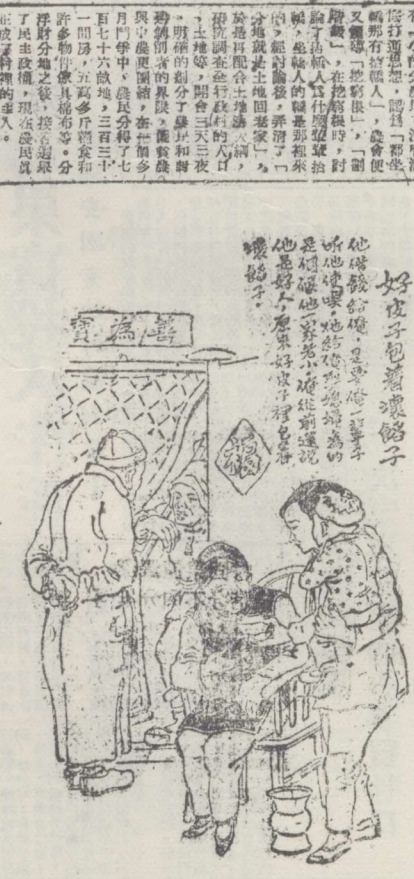 打通思想，認為「都坐
轎那有抬轎人」，農會便
又領導「挖窮根」，「割
階級」，在挖窮根時，討
論了抬轎人為什麼輩抬
轎，坐轎人的轎是那裡來
的，經討論後，弄清了「
分地就是土地回老家」，
於是再配合土地法大綱，
調查全行政村的人口
、土地等，開會三天三夜
，明確的劃分了農民和封
建剝削者的界限，僱貧農
與中農更團結，在一個多
月鬥爭中，農民分得了七
百七十六畝地，三百三十
一間房，五萬多斤糧食和
許多物件傢具棉布等。分
浮財分地之後，接着
了民主政權，現在農民真
正成了村裡的主人。
好皮子包著壞餡子
他借錢給俺，是要俺一輩子
听他使喚，他給俺說媳婦為的
是他一家老小，俺從前還說
他是好人，原來好皮子裡包着
壞餡子。
善為寶